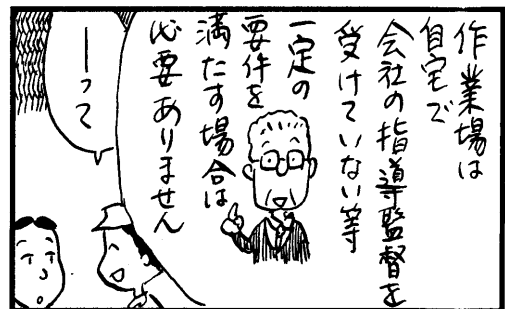 作業場は
自宅で
会社の指導監督を
受けていない等
一定の
要件を
満たす場合は
必要ありません
ーって